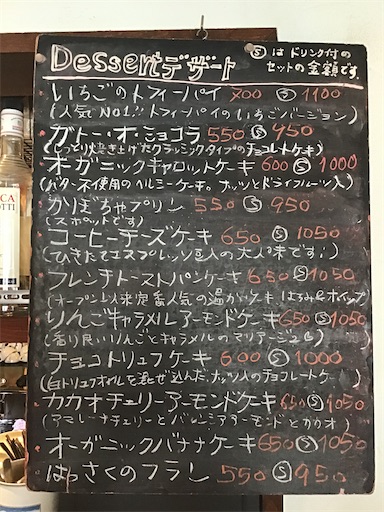 Dessert デザート
Ⓢはドリンク付の
セットの金額です。
いちごのトフィーパイ 700 Ⓢ 1100
(人気NO1!! トフィーパイのいちごバージョン)
ガトー・オ・ショコラ 550 Ⓢ 950
(しっとり焼き上げたクラシックタイプのチョコレートケーキ)
オーガニックキャロットケーキ 600 Ⓢ 1000
(バター不使用のヘルシーケーキ。ナッツとドライフルーツ入)
かぼちゃプリン 550 Ⓢ 950
コーヒーチーズケーキ 650 Ⓢ 1050
(ひきたてエスプレッソ豆入の大人味です!)
フレンチトーストパンケーキ 650 Ⓢ 1050
(オープン以来定番人気の温かいケーキ はちみつ&ホイップ)
りんごキャラメルアーモンドケーキ 650 Ⓢ 1050
(香り良いりんごとキャラメルのマリアージュ)
チョコトリュフケーキ 600 Ⓢ 1000
(白トリュフオイルを混ぜ込んだ、ナッツ入のチョコレートケーキ)
カカオチェリーアーモンドケーキ 650 Ⓢ 1050
(アマレーナチェリーとバレンシアアーモンドとカカオ)
オーガニックバナナケーキ 650 Ⓢ 1050
はっさくのフラン 550 Ⓢ 950